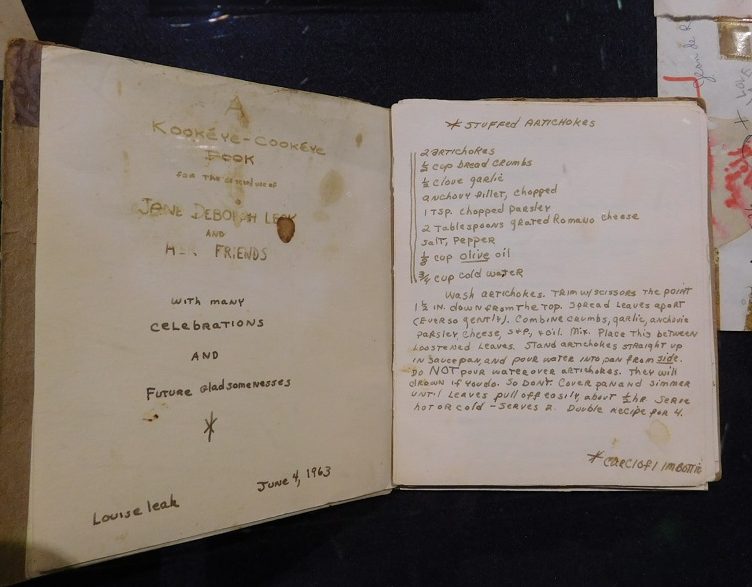 A
KOOKEYE-COOKEYE
BOOK
FOR THE use OF
JANE DEBORAH LEAK
AND
HER FRIENDS
WITH MANY
CELEBRATIONS
AND
FUTURE GLADSOMENESSES
*
JUNE 4, 1963
LOUISE LEAK
* STUFFED ARTICHOKES
2 ARTICHOKES
½ CUP BREAD CRUMBS
½ CLOVE GARLIC
ANCHOVY FILLET, CHOPPED
1 TSP. CHOPPED PARSLEY
2 TABLESPOONS GRATED ROMANO CHEESE
SALT, PEPPER
⅓ CUP OLIVE OIL
¾ CUP COLD WATER
WASH ARTICHOKES. TRIM W/SCISSORS THE POINT
1½ IN. DOWN FROM THE TOP. SPREAD LEAVES APART
(EVER SO GENTLY). COMBINE CRUMBS, GARLIC, ANCHOVIE
PARSLEY, CHEESE, S+P, +OIL. MIX. PLACE THIS BETWEEN
LOOSENED LEAVES. STAND ARTICHOKES STRAIGHT UP
IN SAUCEPAN, AND POUR WATER INTO PAN FROM SIDE.
DO NOT POUR WATER OVER ARTICHOKES. THEY WILL
DROWN IF YOU DO. SO DON'T. COVER PAN AND SIMMER
UNTIL LEAVES PULL OFF EASILY, ABOUT ½ HR. SERVE
HOT OR COLD - SERVES 2. DOUBLE RECIPE FOR 4.
* CARCIOFI IMBOTTITI